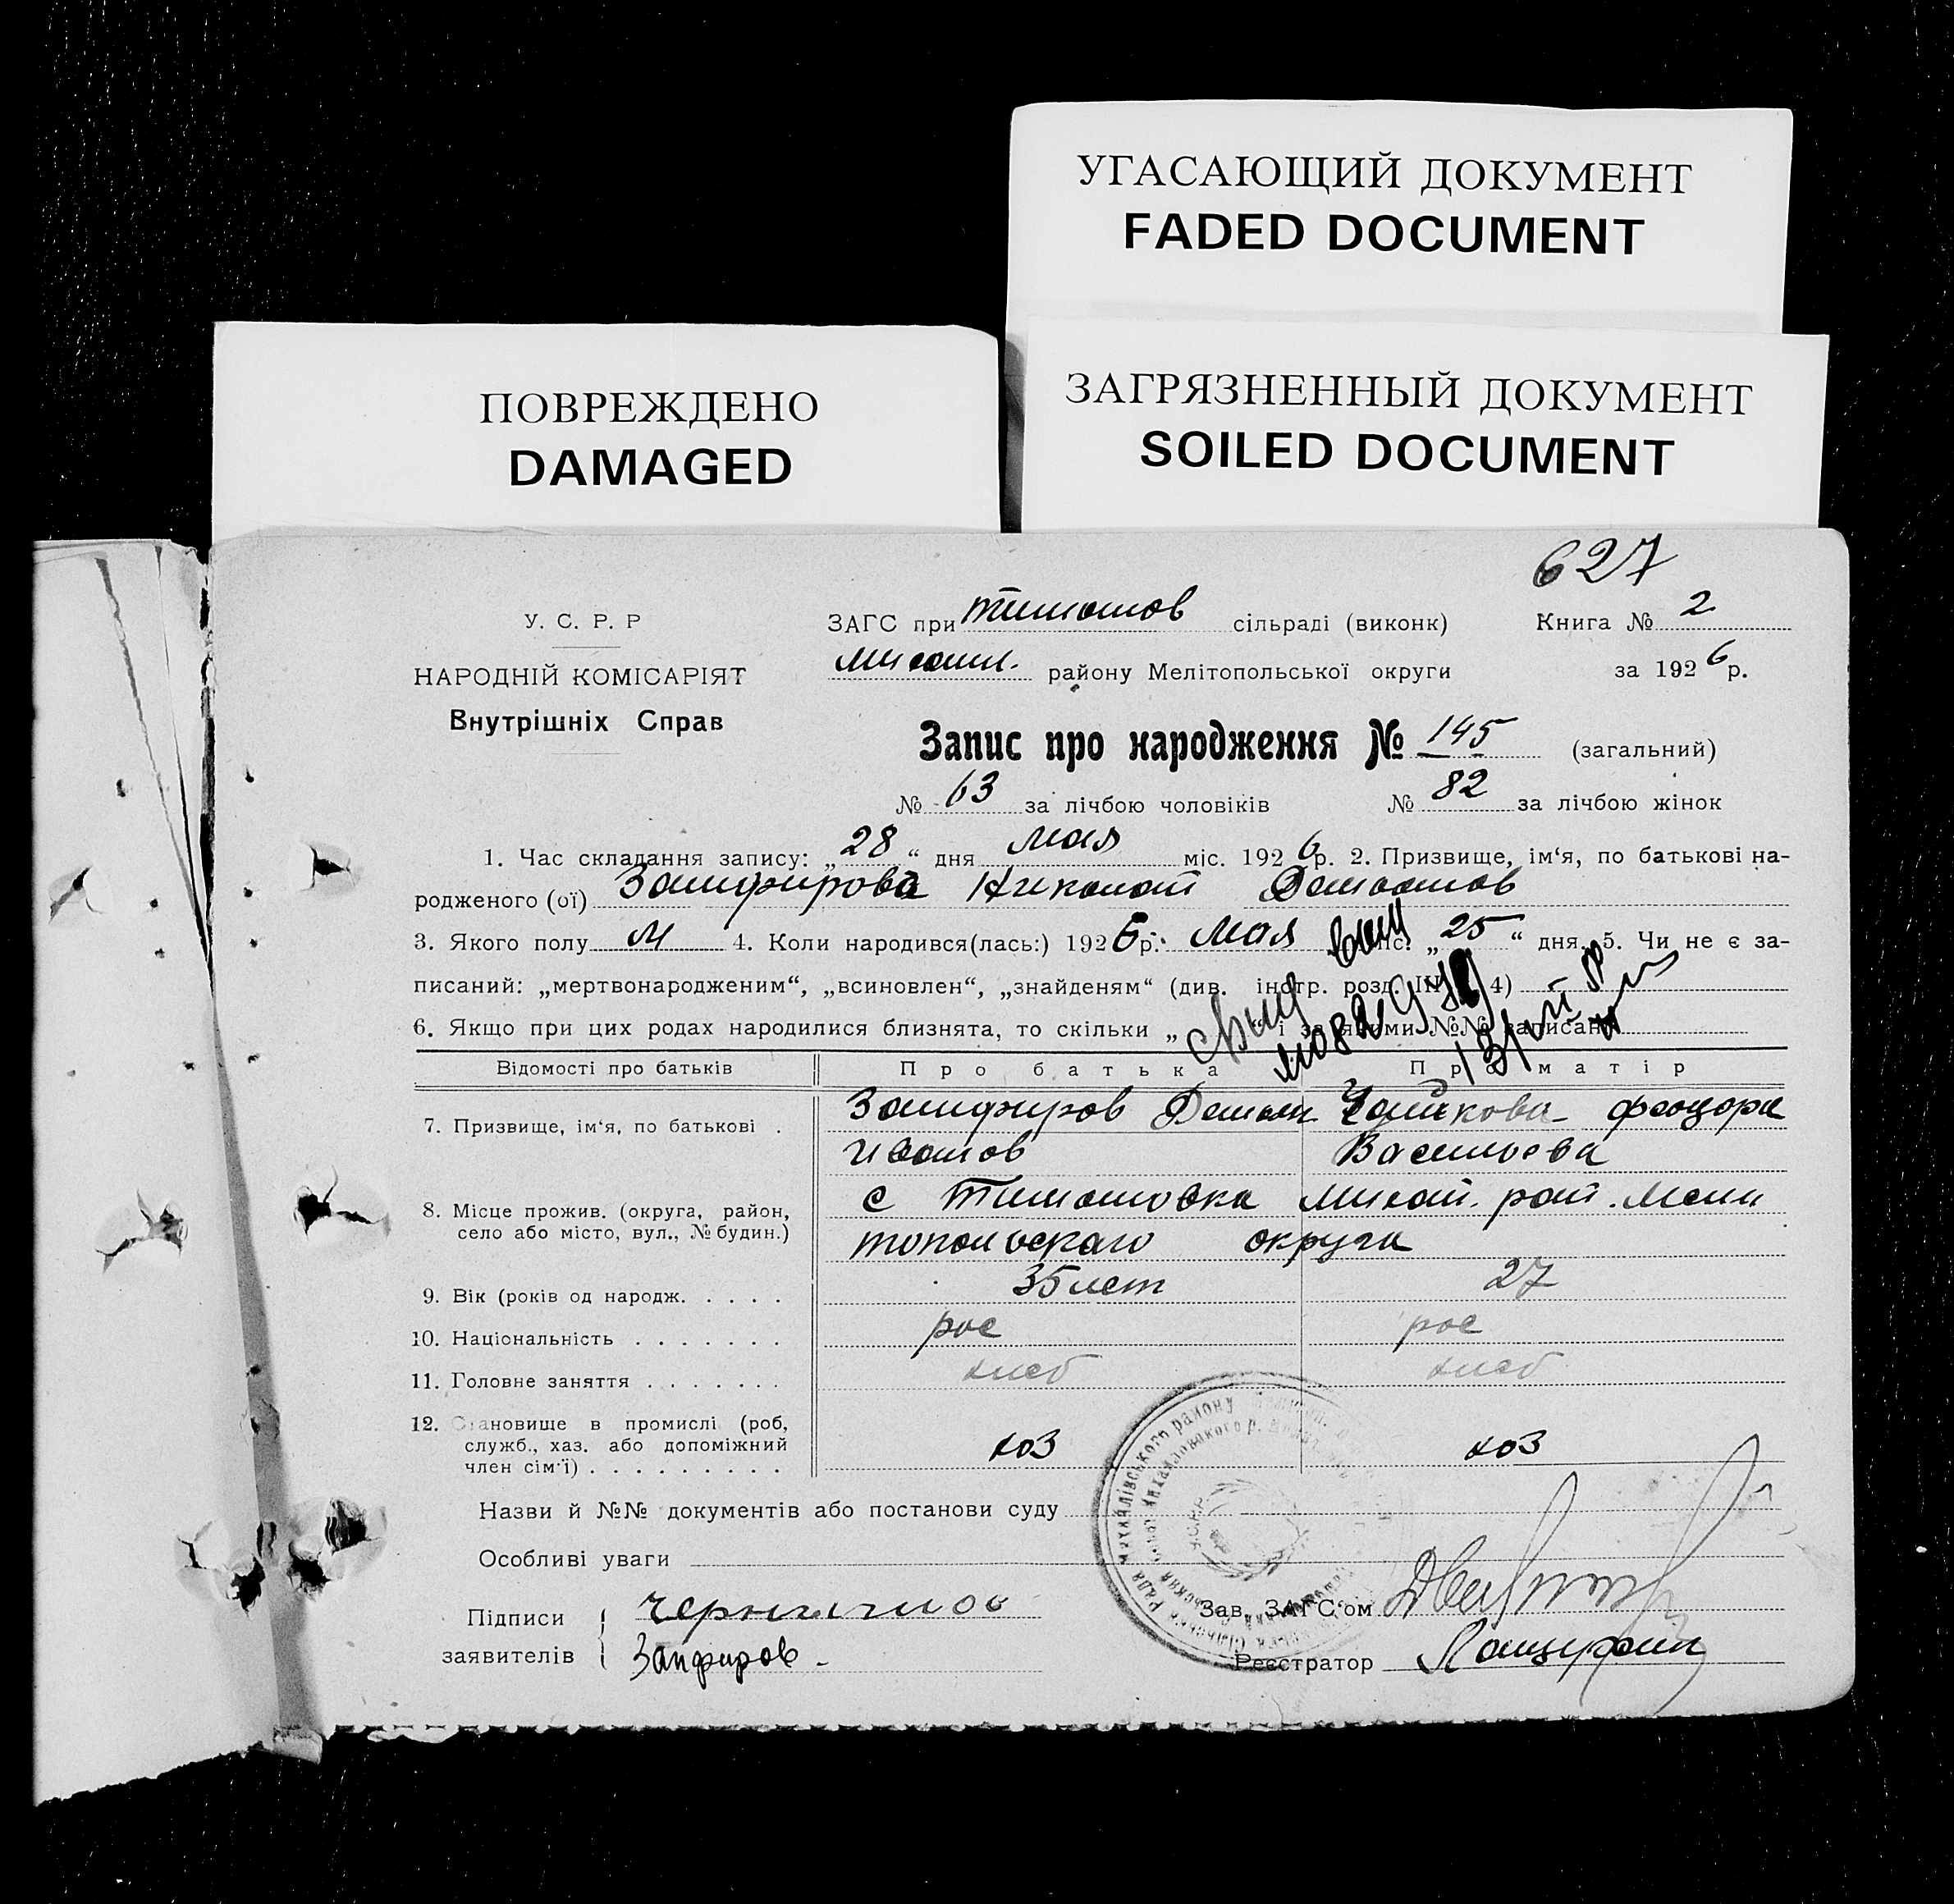 УГАСАЮЩИЙ ДОКУМЕНТ
FADED DOCUMENT
ПОВРЕЖДЕНО
DAMAGED
ЗАГРЯЗНЕННЫЙ ДОКУМЕНТ
SOILED DOCUMENT
627
У. С. Р. Р
НАРОДНІЙ КОМІСАРІЯТ
Внутрішніх Справ
ЗАГС при Тимошов сільраді (виконк)
Книга № 2
Михайл. району Мелітопольської округи
за 1926 р.
Запис про народження № 145 (загальний)
№ 63 за лічбою чоловіків № 82 за лічбою жінок
1. Час складання запису: „28“ дня мая міс. 1926 р. 2. Призвище, ім‘я, по батькові на-
родженого (ої) Замфирова Николай Демьянов
3. Якого полу М 4. Коли народився(лась:) 1926 р. мая міс. „25“ дня. 5. Чи не є за-
писаний: „мертвонародженим“, „всиновлен“, „знайденям“ (див. інстр. розд. 4)
6. Якщо при цих родах народилися близнята, то скільки „ “ і за якими №№ записані
Відомості про батьків Про батька Про матір
7. Призвище, ім‘я, по батькові . Замфиров Демьян Чайкова Феодора
Иванов Васильева
8. Місце прожив. (округа, район,
село або місто, вул., № будин.)
с Тимошовка Михай. рай. Мели
топольскаго округа
9. Вік (років од народж. . . . . 35 лет 27
10. Національність . . . . . . . рос рос
11. Головне заняття . . . . . . . хлеб хлеб
12. Становище в промислі (роб,
служб., хаз. або допоміжний
член сім‘ї) . . . . . . . . . хоз хоз
Назви й №№ документів або постанови суду
Особливі уваги
Підписи
заявителів
Замфиров
Зав. ЗАГС‘ом
Реєстратор